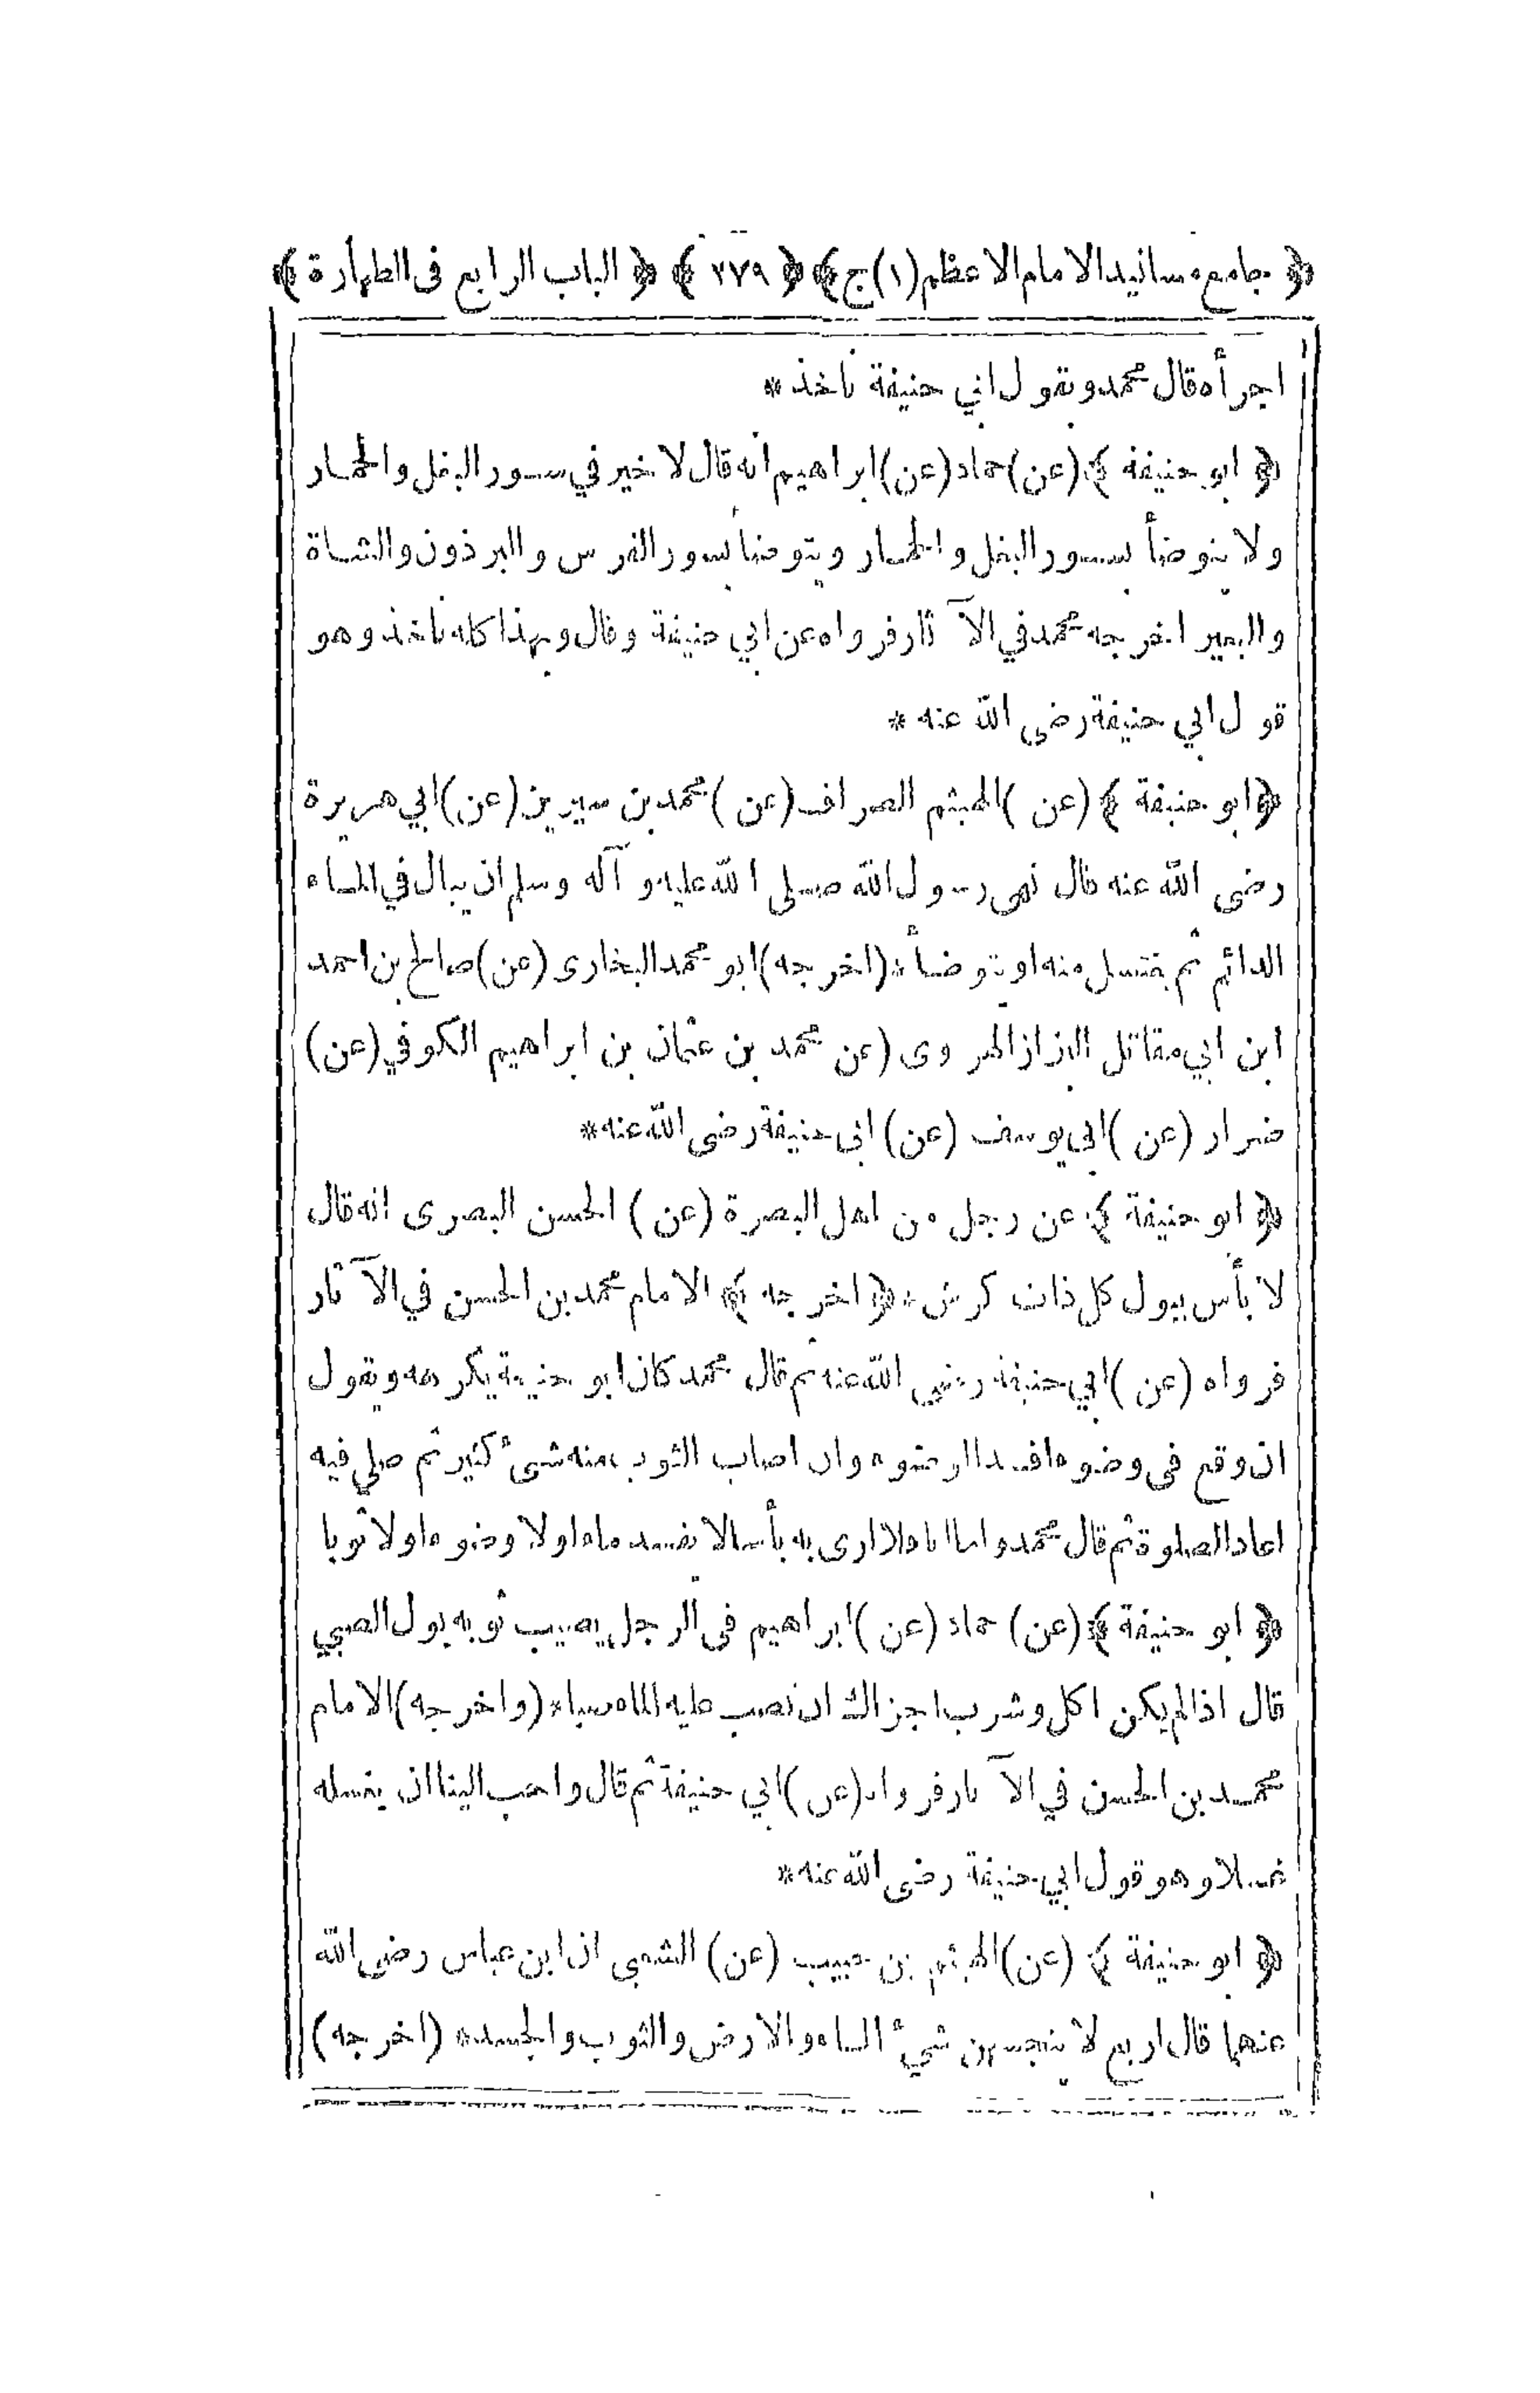 ﴿ جامع مسانيد الامام الاعظم (١) ج ﴾ ﴿ ٢٧٩ ﴾ ﴿ الباب الرابع فى الطهارة ﴾
اجزأه قال محمد وبقول ابي حنيفة نأخذ *
﴿ ابو حنيفة ﴾ (عن) حماد (عن) ابراهيم انه قال لا خير في سور البغل والحمار
ولا يتوضأ بسور البغل والحمار ويتوضأ بسور الفرس والبرذون والشاة
والبعير اخرجه محمد في الآثار فرواه عن ابي حنيفة وقال وبهذا كله نأخذ وهو
قول ابي حنيفة رضى الله عنه *
﴿ ابو حنيفة ﴾ (عن) الهيثم الصراف (عن) محمد بن سيرين (عن) ابي هريرة
رضى الله عنه قال نهى رسول الله صلى الله عليه و آله وسلم ان يبال في الماء
الدائم ثم يغتسل منه او يتوضأ * (اخرجه) ابو محمد البخارى (عن) صالح بن احمد
ابن ابي مقاتل البزاز الهروى (عن محمد بن عثمان بن ابراهيم الكوفي (عن)
ضرار (عن) ابي يوسف (عن) ابى حنيفة رضى الله عنه *
﴿ ابو حنيفة ﴾ عن رجل من اهل البصرة (عن) الحسن البصرى انه قال
لا بأس ببول كل ذات كرش * ﴿ اخرجه ﴾ الامام محمد بن الحسن في الآثار
فرواه (عن) ابي حنيفة رضى الله عنه ثم قال محمد كان ابو حنيفة يكرهه ويقول
ان وقع فى وضوء افسد الوضوء وان اصاب الثوب منه شئ كثير ثم صلى فيه
اعاد الصلوة ثم قال محمد واما انا فلا ارى به بأسا لا يفسد ماء ولا وضوء ولا ثوبا
﴿ ابو حنيفة ﴾ (عن) حماد (عن) ابراهيم فى الرجل يصيب ثوبه بول الصبي
قال اذا لم يكن اكل وشرب اجزاك ان تصب عليه الماء صبا * (واخرجه) الامام
محمد بن الحسن في الآثار فرواه (عن) ابي حنيفة ثم قال واحب الينا ان يغسله
غسلا وهو قول ابي حنيفة رضى الله عنه *
﴿ ابو حنيفة ﴾ (عن) الهيثم بن حبيب (عن) الشعبى ان ابن عباس رضى الله
عنهما قال اربع لا ينجسهن شيء الماء والارض والثوب والجسد * (اخرجه)